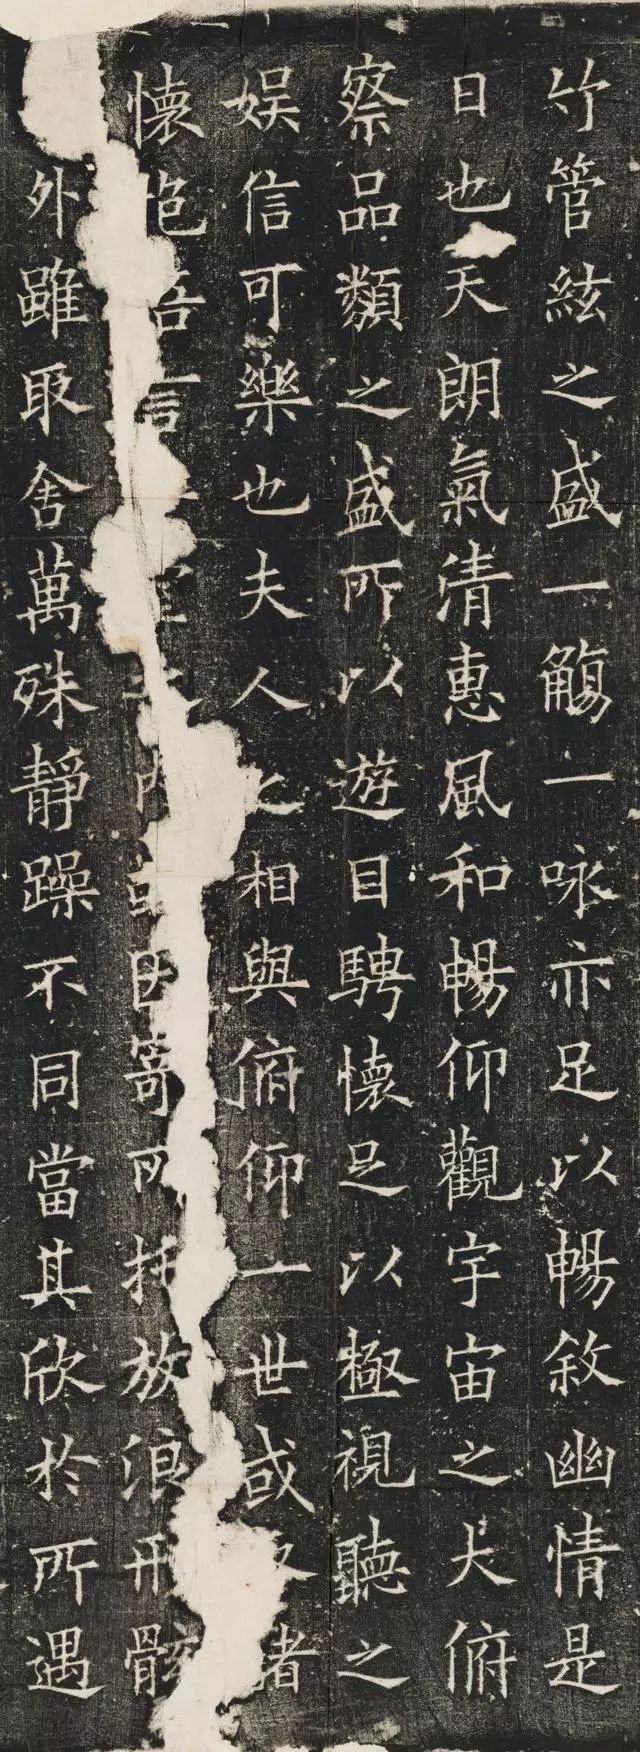 竹管絃之盛一觴一咏亦足以暢敘幽情是
日也天朗氣清惠風和暢仰觀宇宙之大俯
察品類之盛所以遊目騁懷足以極視聽之
娛信可樂也夫人之相與俯仰一世或諸
懷抱悟言內或因寄所托放浪形骸
外雖取舍萬殊靜躁不同當其欣於所遇